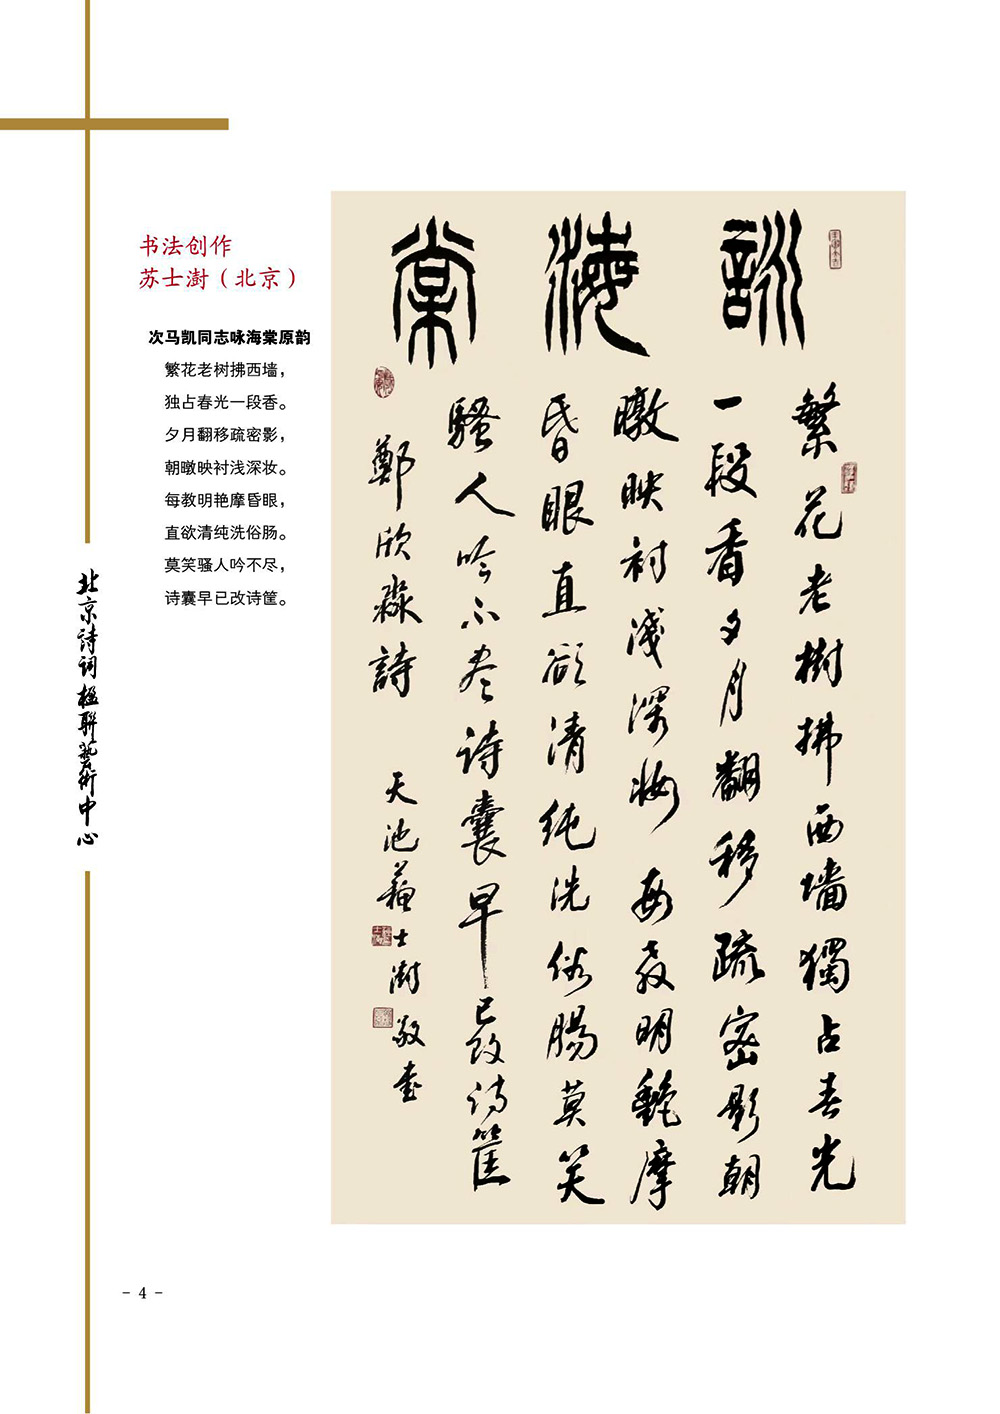 书法创作
苏士澍（北京）
次马凯同志咏海棠原韵
繁花老树拂西墙，
独占春光一段香。
夕月翻移疏密影，
朝暾映衬浅深妆。
每教明艳摩昏眼，
直欲清纯洗俗肠。
莫笑骚人吟不尽，
诗囊早已改诗筐。
北京詩词楹聯藝術中心
詠海棠
繁花老樹拂西墙獨占春光
一段香夕月翻移疏密影朝
暾映衬淺深妝每教明艷摩
昏眼直欲清纯洗俗腸莫笑
騷人吟不尽诗囊早已改诗筐
鄭欣淼詩 天池蘇士澍敬书
- 4 -